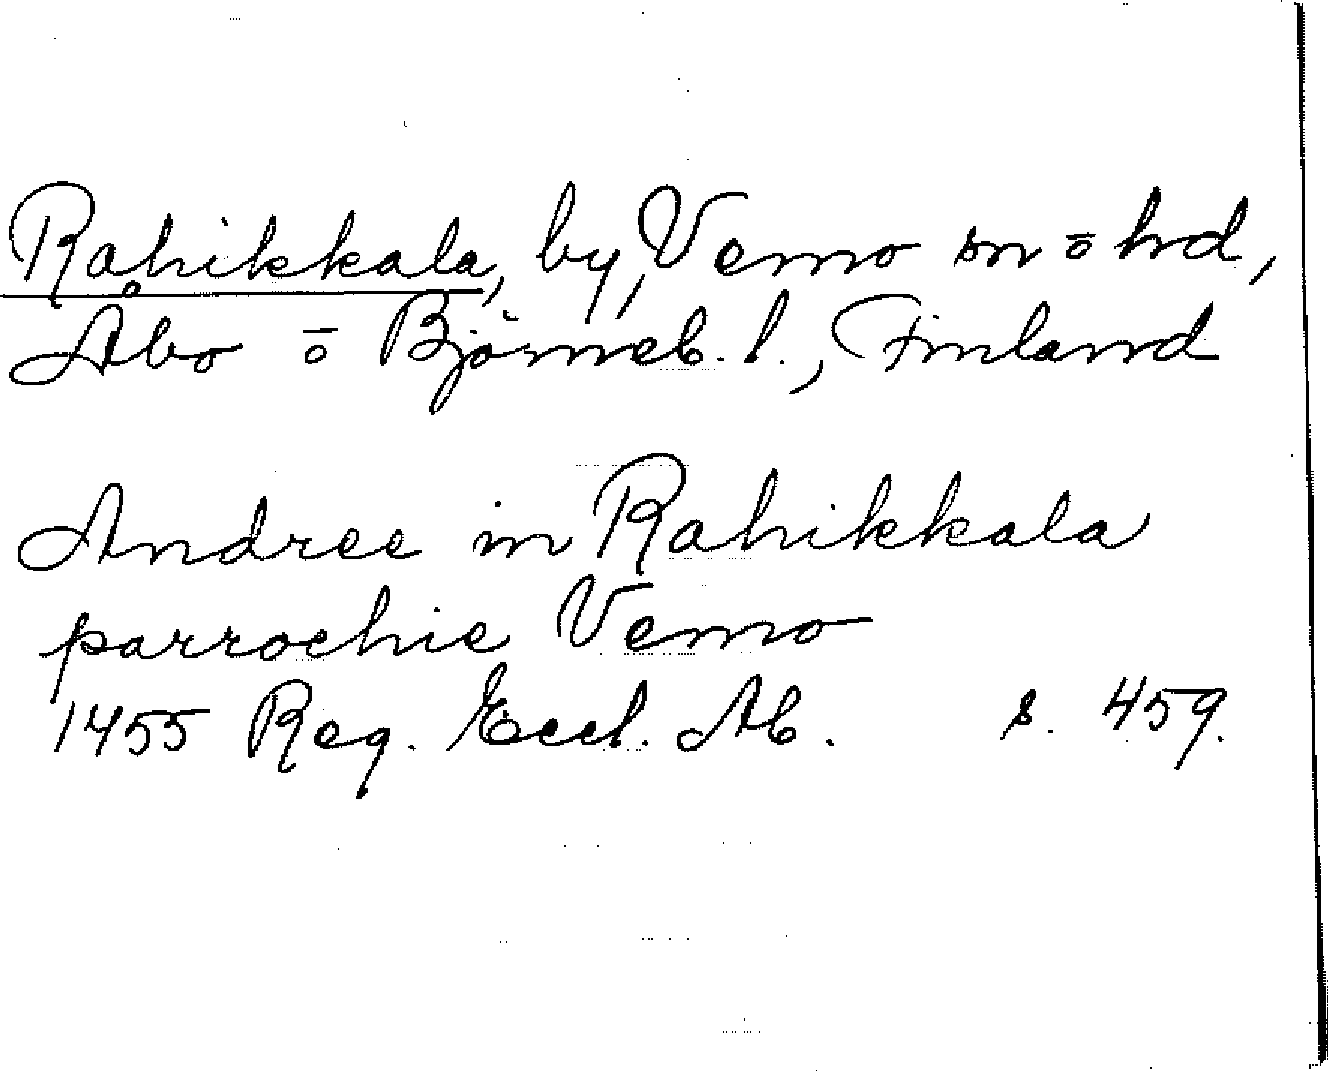 Rahikkala, by, Vemo sn ō hd,
Åbo ō Björneb. l., Finland
Andree in Rahikkala
parrochie Vemo
1455 Reg. Eccl. Ab. s. 459.